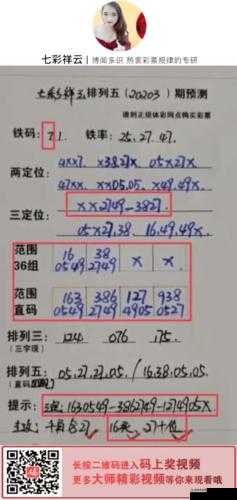 七彩祥云 | 博闻多识 热衷彩票规律的专研
七彩祥云 排列五 (20203) 期预测
请到正规体彩网点购买彩票
铁码: 71. 铁率: 25.27.47.
两定位: 4xx7. x38.27x. 05x27x
47xx. xx05.05. x49.49x.
三定位: xx2749—3827.
05x27.38 16.49.49x
范围 36组 16 0549 38 2749 x x
范围 直码 163 0549 386 2749 127 4905 938 0527
排列三: 124 076 175.
(三字现)
排列五: 05.27.27.05. / 16.38.05.05.
提示: 1630549—3862749—1274905x
长按二维码进入码上奖视频
更多大师精彩视频等你来观看